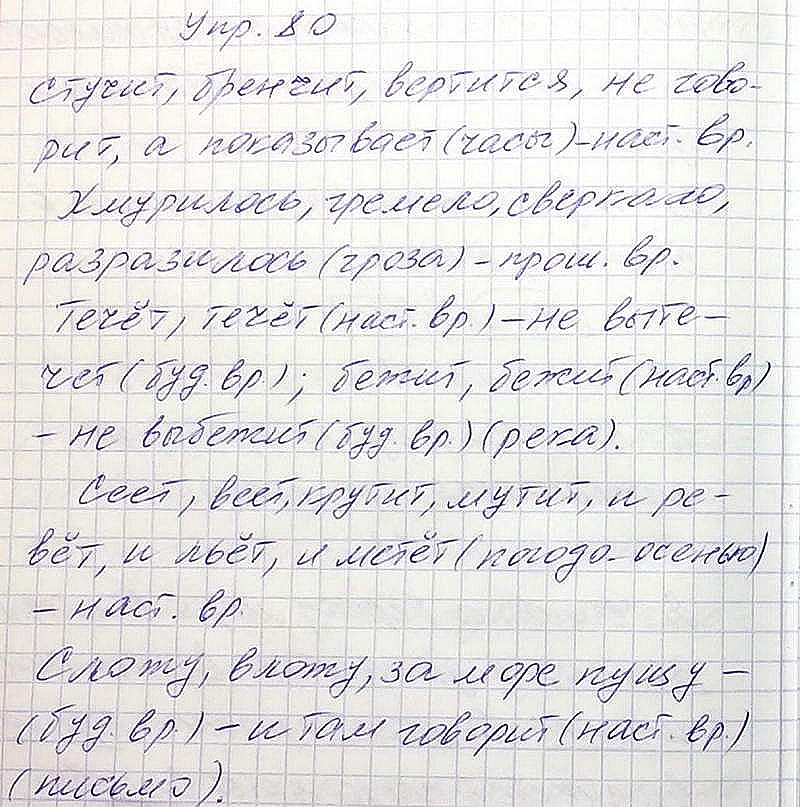 Упр. 80
стучит, бренчит, вертится, не гово-
рит, а показывает (часы) - наст. вр.
Хмурилось, гремело, сверкало,
разразилось (гроза) - прош. вр.
Течёт, течёт (наст. вр.) - не выте-
чет (буд. вр.); бежит, бежит (наст. вр)
- не выбежит (буд. вр.) (река).
Сеет, веет, крутит, мутит, и ре-
вёт, и льёт, и метёт (погода осенью)
- наст. вр.
Сложу, вложу, за море пущу -
(буд. вр.) - и там говорит (наст. вр.)
(письмо).